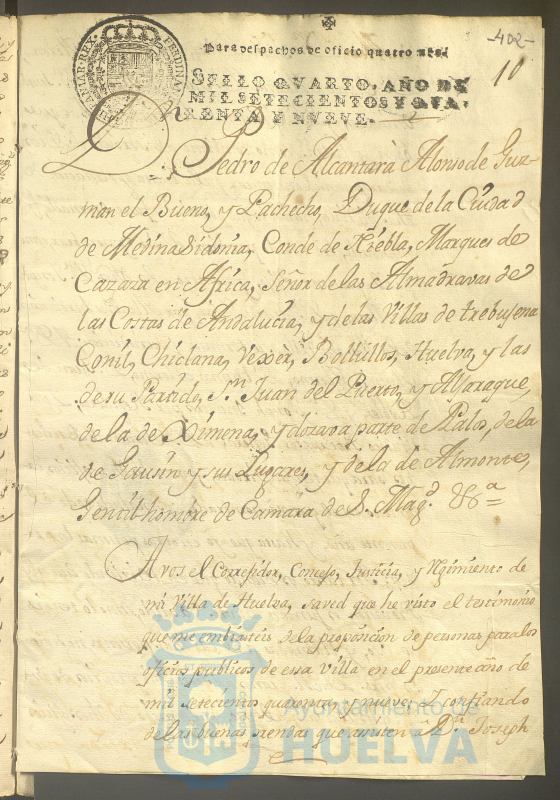 -402-
10
Para despachos de oficio quatro mrs.
SELLO QVARTO, AÑO DE
MIL SETECIENTOS Y QVA-
RENTA Y NVEVE.
D. Pedro de Alcantara Alonso de Guz-
man el Bueno, y Pachecho, Duque de la Ciudad
de Medina Sidonia, Conde de Niebla, Marques de
Cazaza en Africa, Señor de las Almadravas de
las Costas de Andalucia, y de las Villas de trebujena
Conil, Chiclana, Vexer, Bollullos, Huelva, y las
de su Partido, Sn. Juan del Puerto, y Alxaraque,
de la de Ximena, y dozava parte de Palos, de la
de Gausin y sus Lugares, y de la de Almonte,
Gentilhombre de Camara de S. Magd. &a =
A vos el Corregidor, Concejo, Justicia, y Rejimiento de
mi Villa de Huelva, saved que he visto el testimonio
que me embiasteis de la proposicion de personas para los
oficios publicos de essa Villa en el presente año de
mil setecientos quarenta, y nueve; Y confiando
de las buenas prendas que asisten a Dn. Joseph
Ayuntamiento de
HUELVA